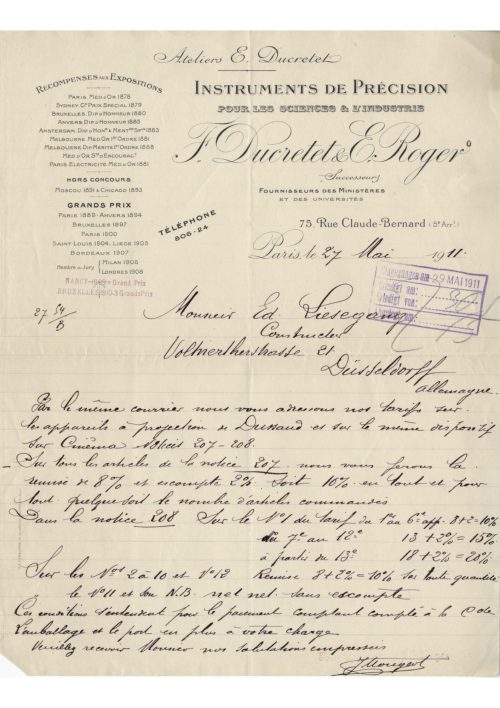 Ateliers E. Ducretet
RECOMPENSES AUX EXPOSITIONS
PARIS. MED. D'OR 1878
SYDNEY. Gd PRIX SPECIAL 1879
BRUXELLES. DIP. D'HONNEUR 1880
ANVERS. DIP. D'HONNEUR 1885
AMSTERDAM. DIP. D'HONr & MENTION SPle 1883
MELBOURNE. MED. D'OR 1er ORDRE 1881
MELBOURNE. DIP. MERITE 1er ORDRE 1888
MED. D'OR Sté D'ENCOURAGt
PARIS. ELECTRICITE. MED. D'OR 1881
HORS CONCOURS
MOSCOU 1891 & CHICAGO 1893
GRANDS PRIX
PARIS 1889. ANVERS 1894
BRUXELLES 1897
PARIS 1900
SAINT LOUIS 1904. LIEGE 1905
BORDEAUX 1907
Membre du Jury MILAN 1906
LONDRES 1908
NANCY 1909 Grand Prix
BRUXELLES 1910 3 Grands Prix
INSTRUMENTS DE PRÉCISION
POUR LES SCIENCES & L'INDUSTRIE
F. Ducretet & E. Roger
Successeurs
FOURNISSEURS DES MINISTÈRES
ET DES UNIVERSITÉS
TÉLÉPHONE
805-24
75, RUE CLAUDE-BERNARD (5e Arrt)
Paris, le 27 Mai 1911.
29 MAI 1911
Monsieur Ed. Liesegang
Constructeur
Volmertherstrasse 21
Düsseldorff
Allemagne.
Par le même courrier nous vous adressons nos tarifs sur
les appareils à projection de Dussaud et sur le même dispositif
sur Cinéma notices 207-208.
Sur tous les articles de la notice 207 nous vous ferons la
remise de 8% et escompte 2% soit 10% en tout et pour
tout quelque soit le nombre d'articles commandés
Dans la notice 208 Sur le No 1 du tarif du 1er au 6e app. 8+2=10%
du 7e au 12e 13+2%=15%
à partir du 13e 18+2%=20%
Sur les Nos 2 à 10 et No 12 Remise 8+2%=10% sur toute quantité
le No 11 et son N.B. net net sans escompte
Ces conditions s'entendent pour le payement comptant compté à la Cde
L'emballage et le port en plus à votre charge
Veuillez recevoir Monsieur nos salutations empressées